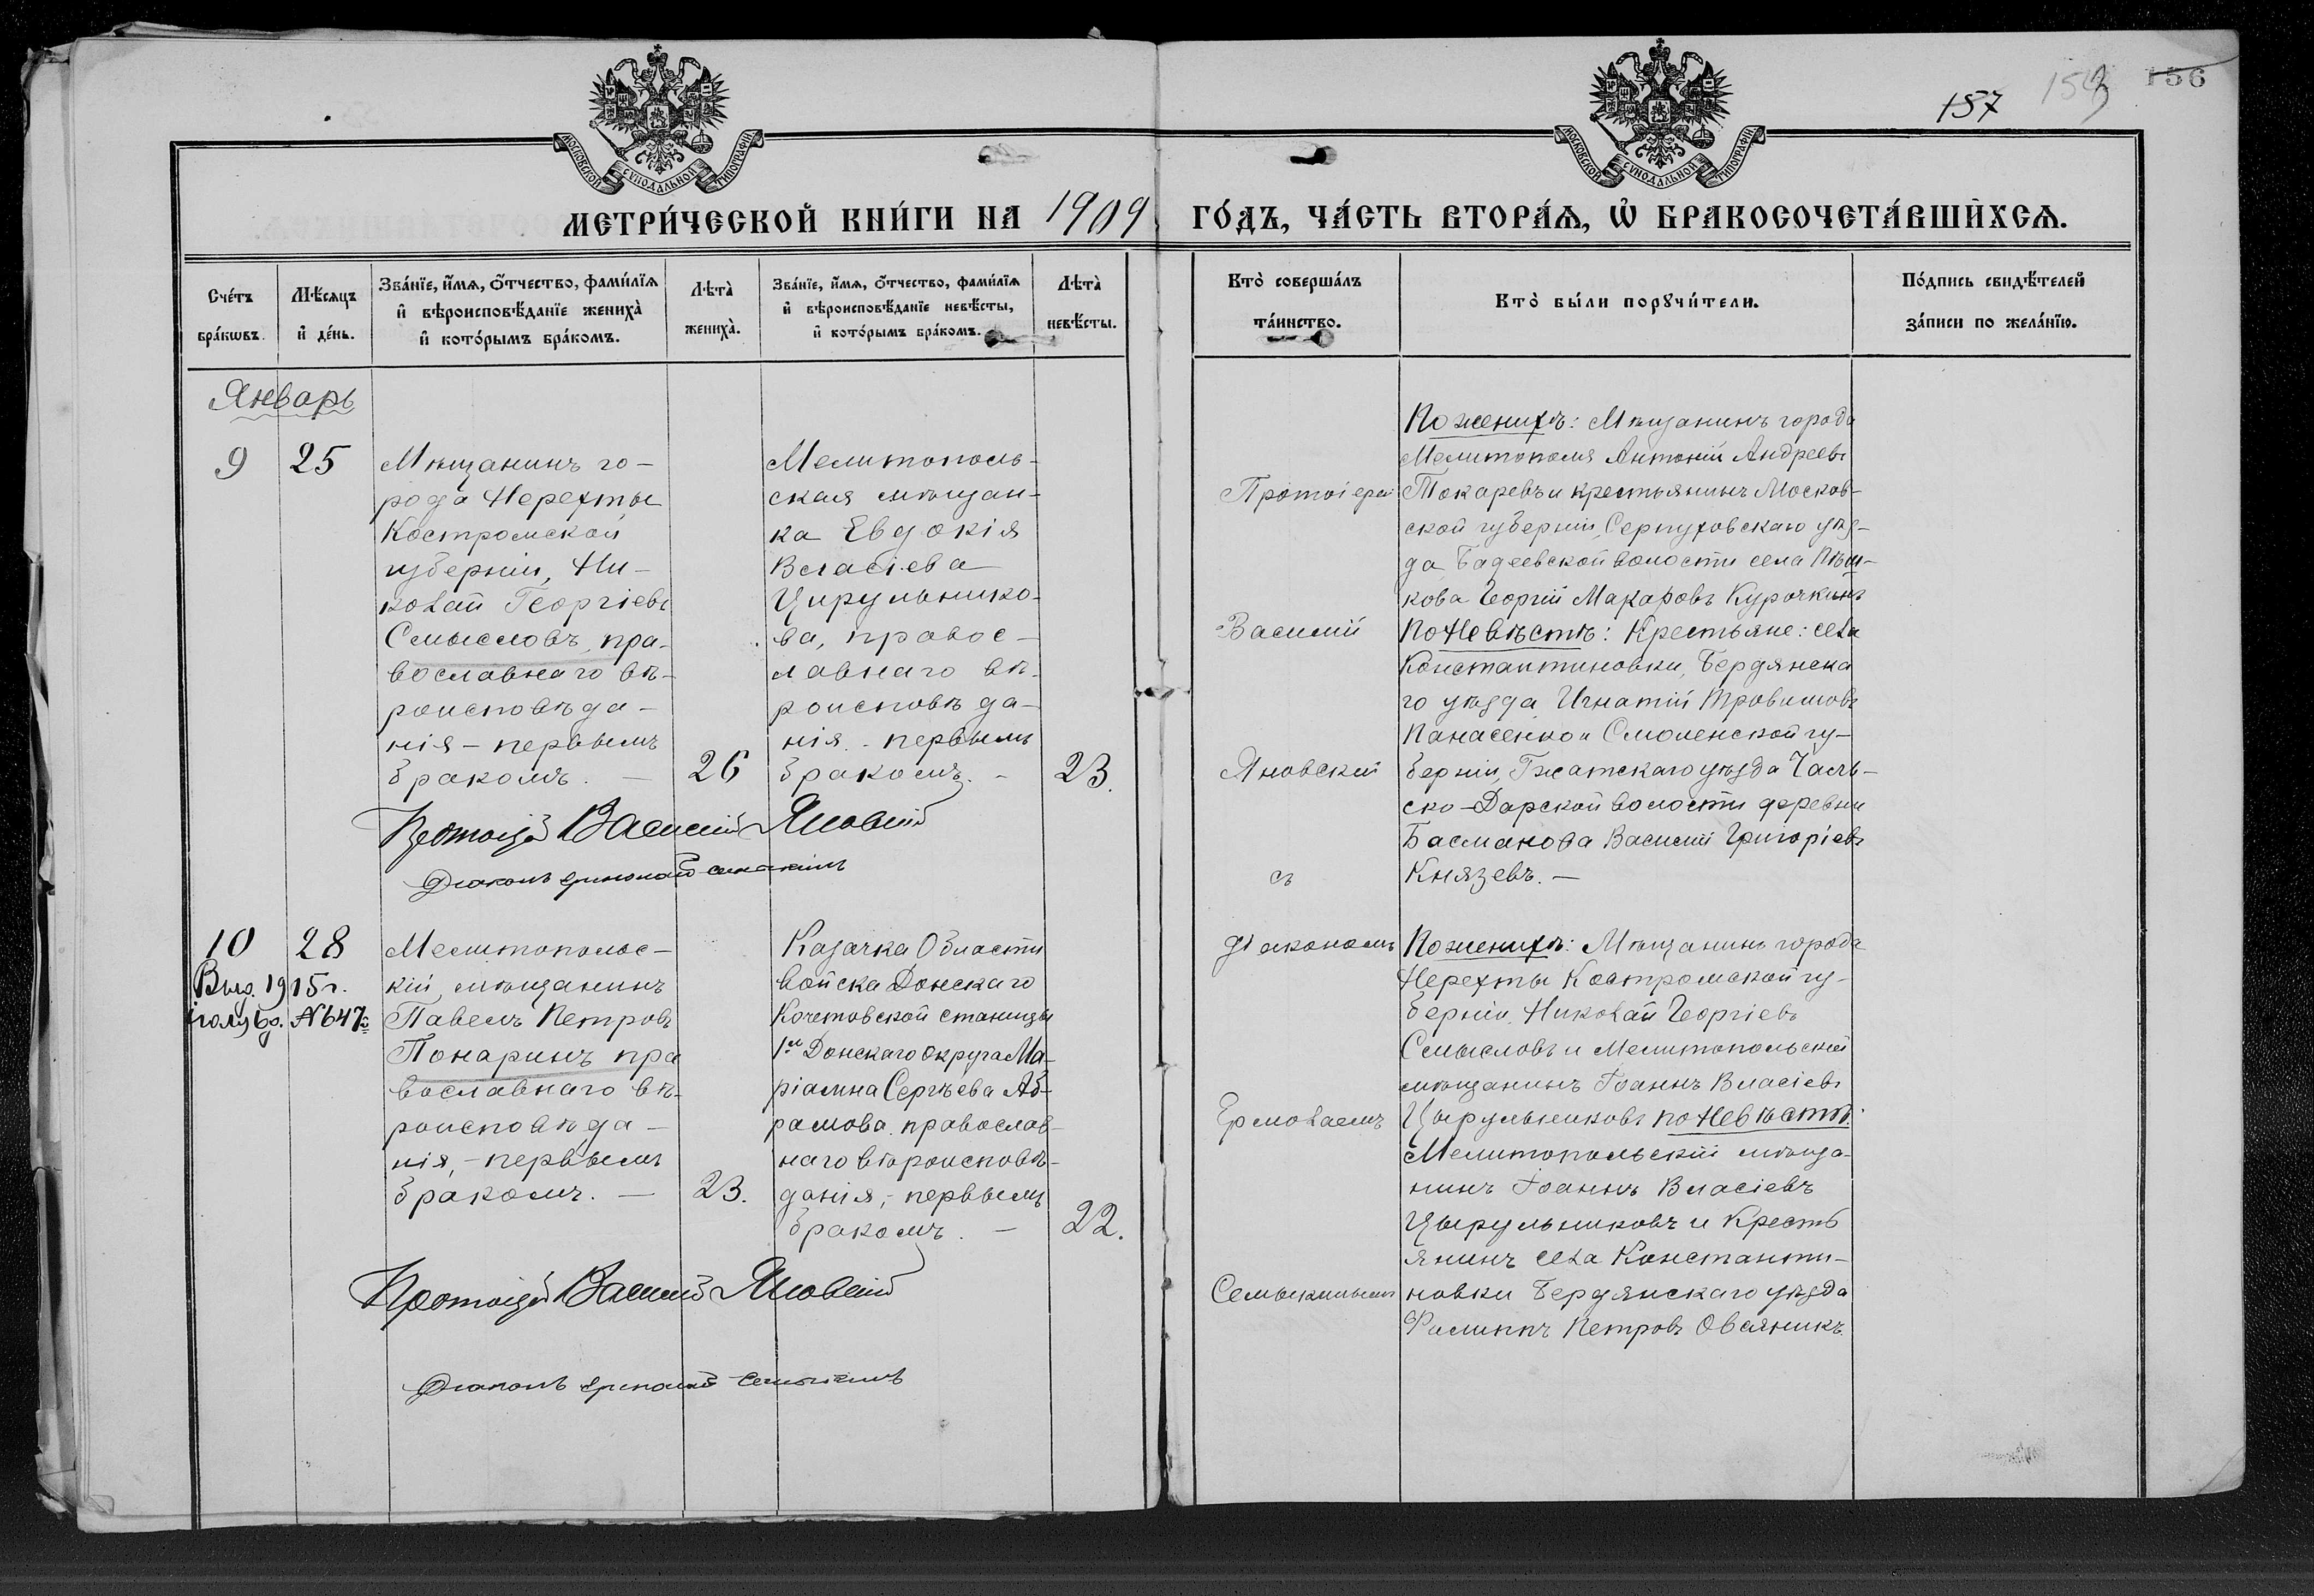 157 153 156
МОСКОВСКОЙ СѴНОДАЛЬНОЙ ТИПОГРАФІИ
МОСКОВСКОЙ СѴНОДАЛЬНОЙ ТИПОГРАФІИ
МЕТРИ́ЧЕСКОЙ КНИ́ГИ НА 1909 ГО́ДЪ, ЧА́СТЬ ВТОРА́Ѧ, Ѡ҆ БРАКОСОЧЕТА́ВШИХСѦ.
Сче́тъ
бра́кѡвъ.
Мѣ́сѧцъ
и҆ де́нь.
Зва́нїе, и҆́мѧ, ѻ҆́тчество, фами́лїѧ
и҆ вѣроисповѣ́данїе жениха̀
и҆ кото́рымъ бра́комъ.
Лѣта̀
жениха̀.
Зва́нїе, и҆́мѧ, ѻ҆́тчество, фами́лїѧ
и҆ вѣроисповѣ́данїе невѣ́сты,
и҆ кото́рымъ бра́комъ.
Лѣта̀
невѣ́сты.
Кто̀ соверша́лъ
та́инство.
Кто̀ бы́ли порꙋчи́тели.
По́дпись свидѣ́телей
за́писи по жела́нїю.
Январь
9
25
Мѣщанинъ го-
рода Нерехты
Костромской
губерніи, Ни-
колай Георгіевъ
Смысловъ, пра-
вославнаго вѣ-
роисповѣда-
нія - первымъ
бракомъ. —
26
Мелитополь-
ская мѣщан-
ка Евдокія
Власіева
Цирульнико-
ва, правос-
лавнаго вѣ-
роисповѣда-
нія - первымъ
бракомъ. -
23.
Протоіерей Василий Яновский
Діаконъ Ермолай
Протоіерей
Василий
Яновский
съ
Діакономъ
Ермолаемъ
По женихѣ: Мѣщанинъ города
Мелитополя Антоній Андреевъ
Токаревъ и крестьянинъ Москов-
ской губерніи, Серпуховскаго уѣз-
да Бадеевской волости села Пѣш-
кова Георгій Макаровъ Курочкинъ
По невѣстѣ: Крестьяне: села
Константиновки, Бердянска
го уѣзда Игнатій
Панасенко и Смоленской гу-
берніи, Гжатскаго уѣзда
Дарской волости деревни
Басманова Василий Григоріевъ
Князевъ. —
10
28
Выд. 1915 г.
№ 647.
Мелитопольс-
кій мѣщанинъ
Павелъ Петровъ
Понаринъ пра
вославнаго вѣ-
роисповѣда-
нія, - первымъ
бракомъ. —
23.
Казачка Области
войска Донскаго
Кочетовской станицы
1го Донскаго округа Ма-
ріамна Сергѣева Аб-
рамова, православ-
наго вѣроисповѣ-
данія, - первымъ
бракомъ. —
22.
Протоіерей Василий Яновский
Діаконъ Ермолай
По женихѣ: Мѣщанинъ города
Нерехты Костромской гу-
берніи, Николай Георгіевъ
Смысловъ и Мелитопольскій
мѣщанинъ Іоаннъ Власіевъ
Цырульниковъ по невѣстѣ:
Мелитопольскій мѣща-
нинъ Іоаннъ Власіевъ
Цырульниковъ и Кресть
янинъ села Константи-
новки Бердянскаго уѣзда
Филиппъ Петровъ Овсяникъ.